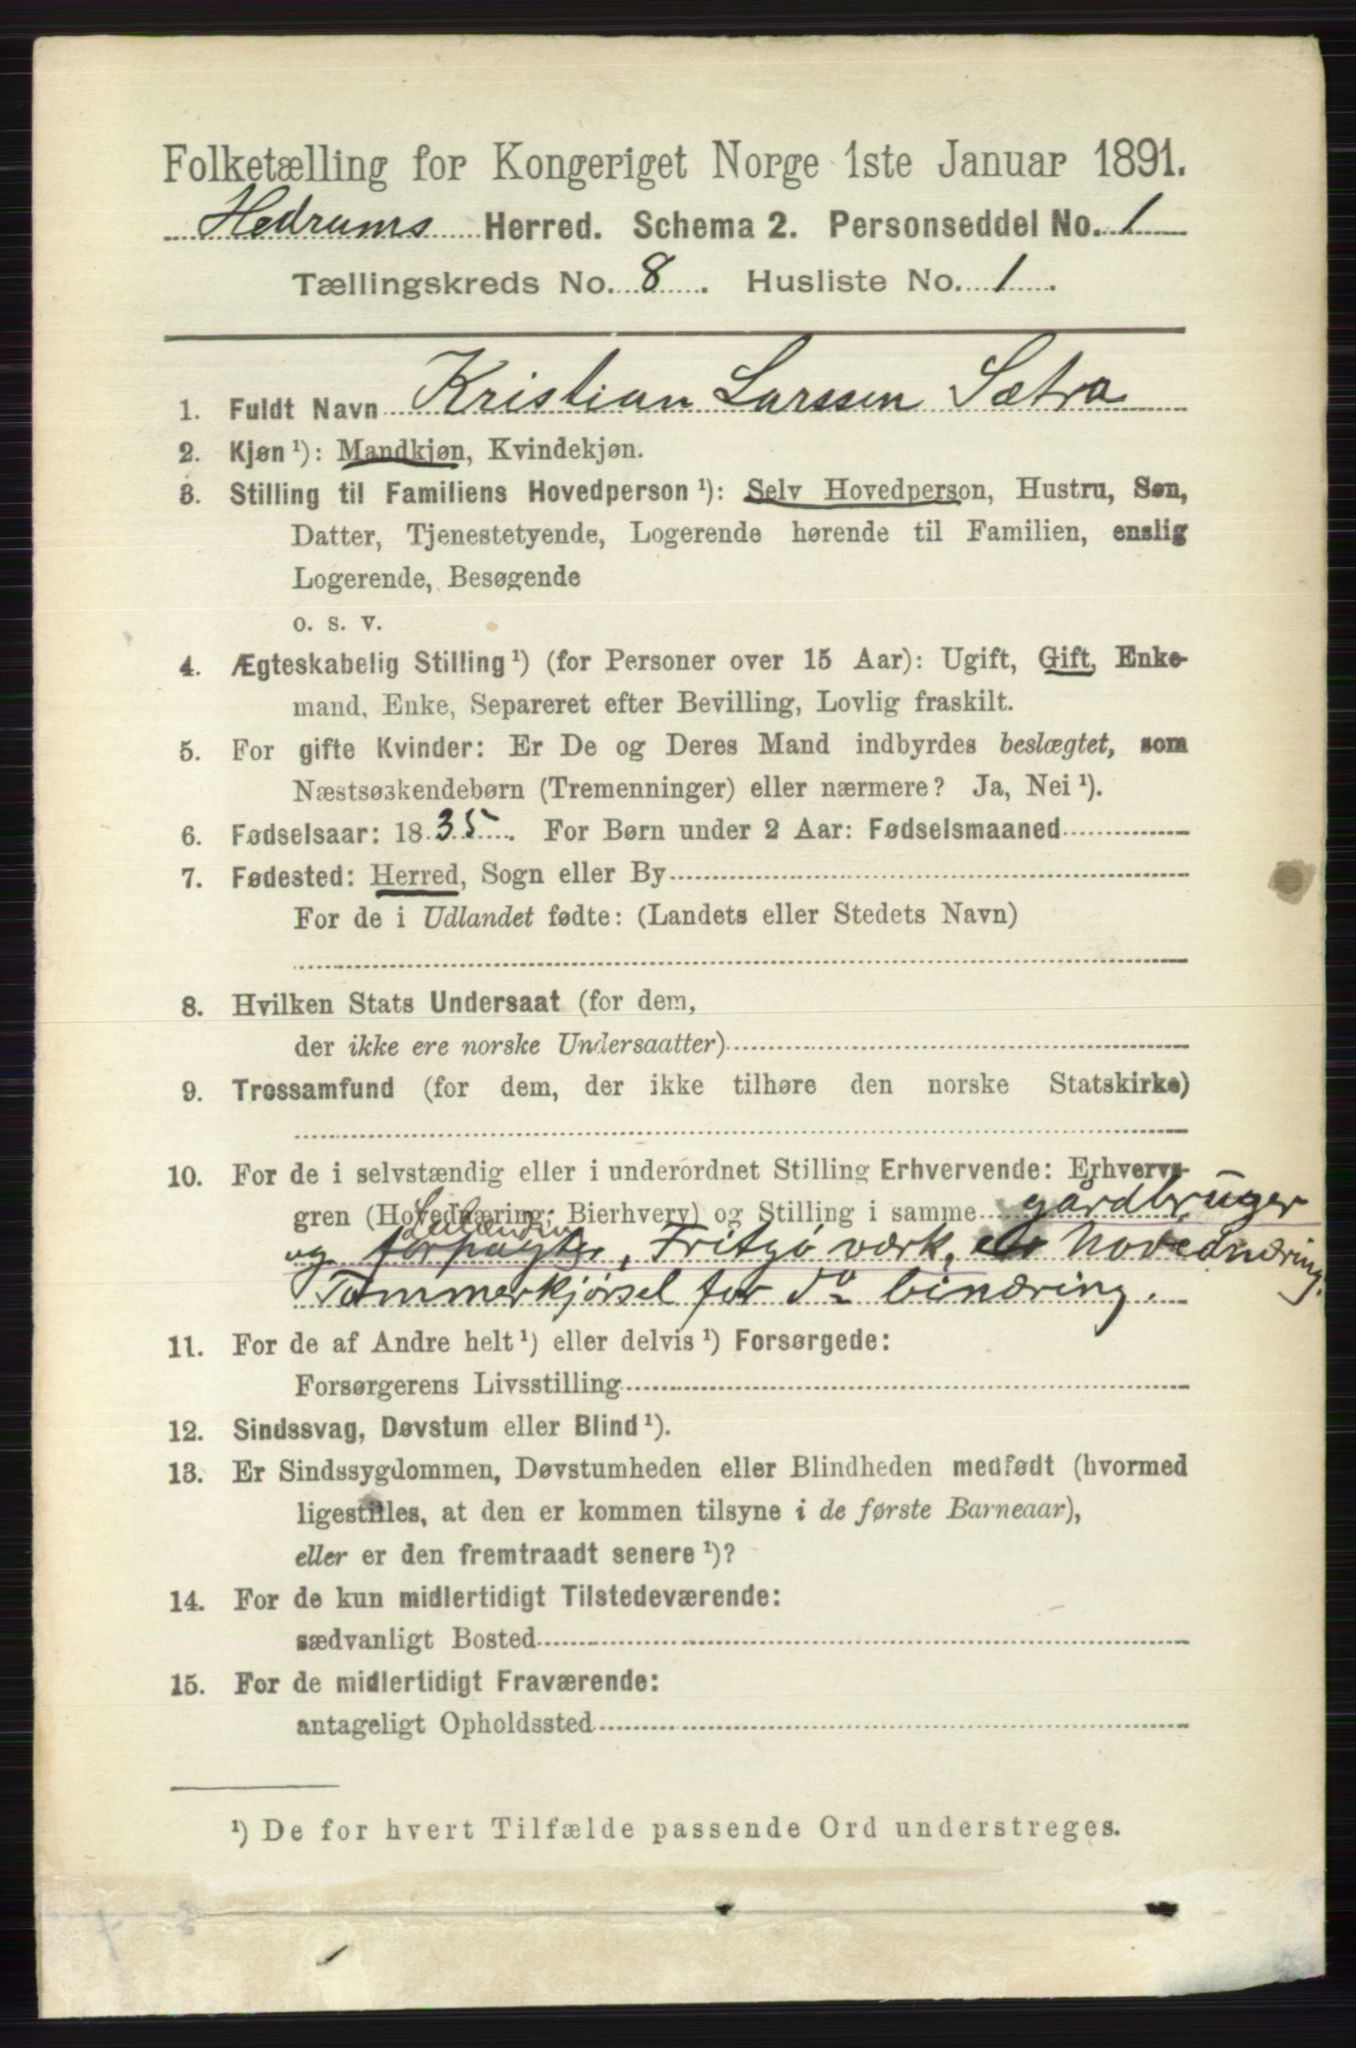 Folketælling for Kongeriget Norge 1ste Januar 1891.
Hedrums Herred. Schema 2. Personseddel No. 1
Tællingskreds No. 8. Husliste No. 1.
1. Fuldt Navn Kristian Larssen Sætra
2. Kjøn ¹): Mandkjøn, Kvindekjøn.
3. Stilling til Familiens Hovedperson ¹): Selv Hovedperson, Hustru, Søn,
Datter, Tjenestetyende, Logerende hørende til Familien, enslig
Logerende, Besøgende
o. s. v.
4. Ægteskabelig Stilling ¹) (for Personer over 15 Aar): Ugift, Gift, Enke-
mand, Enke, Separeret efter Bevilling, Lovlig fraskilt.
5. For gifte Kvinder: Er De og Deres Mand indbyrdes beslægtet, som
Næstsøskendebørn (Tremenninger) eller nærmere? Ja, Nei ¹).
6. Fødselsaar: 1835. For Børn under 2 Aar: Fødselsmaaned
7. Fødested: Herred, Sogn eller By
For de i Udlandet fødte: (Landets eller Stedets Navn)
8. Hvilken Stats Undersaat (for dem,
der ikke ere norske Undersaatter)
9. Trossamfund (for dem, der ikke tilhøre den norske Statskirke)
10. For de i selvstændig eller i underordnet Stilling Erhvervende: Erhvervs-
gren (Hovednæring; Bierhverv) og Stilling i samme gårdbruger
Leilending
og forpagter, Fritzø værk, Hovednæring,
Tømmerkjørsel for do binæring.
11. For de af Andre helt ¹) eller delvis ¹) Forsørgede:
Forsørgerens Livsstilling
12. Sindssvag, Døvstum eller Blind ¹).
13. Er Sindssygdommen, Døvstumheden eller Blindheden medfødt (hvormed
ligestilles, at den er kommen tilsyne i de første Barneaar),
eller er den fremtraadt senere ¹)?
14. For de kun midlertidigt Tilstedeværende:
sædvanligt Bosted
15. For de midlertidigt Fraværende:
antageligt Opholdssted
¹) De for hvert Tilfælde passende Ord understreges.